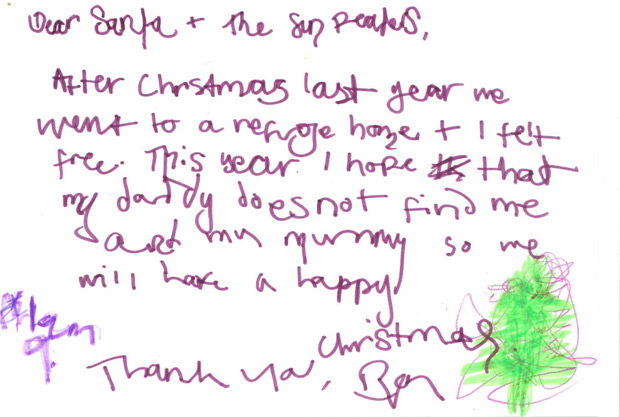 Dear Santa + The Sun Readers,
After Christmas last year we
went to a refuge home + I felt
free. This year I hope that
my daddy does not find me
and my mummy so we
will have a happy
christmas.
I am
9.
Thank You, Ben